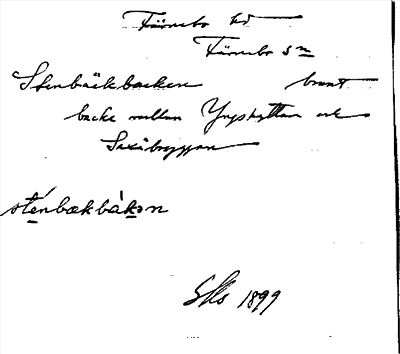 Färnebo hd
Färnebo sn
Stenbäckbacken brant
backe mellan Yngshyttan och
Saxåbryggan
sténbækbàkən
Sks 1899